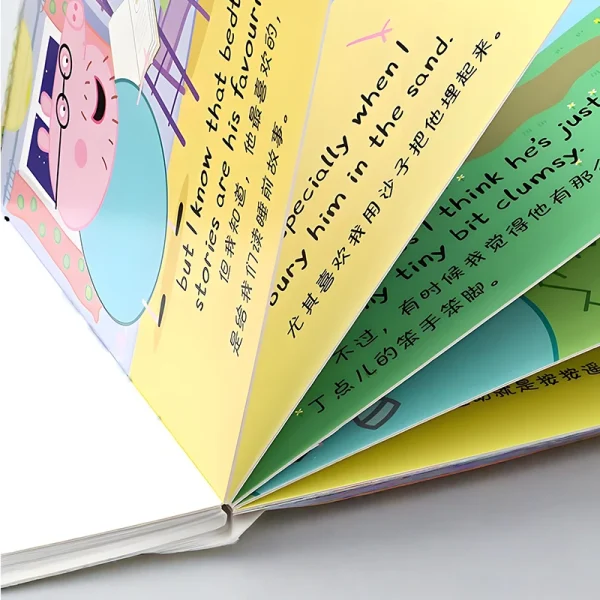 but I know that bedt
stories are his favouri
但我知道，他最喜欢的，
是给我们读睡前故事。
pecially when I
bury him in the sand.
尤其喜欢我用沙子把他埋起来。
I think he's just
ny tiny bit clumsy.
不过，有时候我觉得他有那
丁点儿的笨手笨脚。
就是按按遥